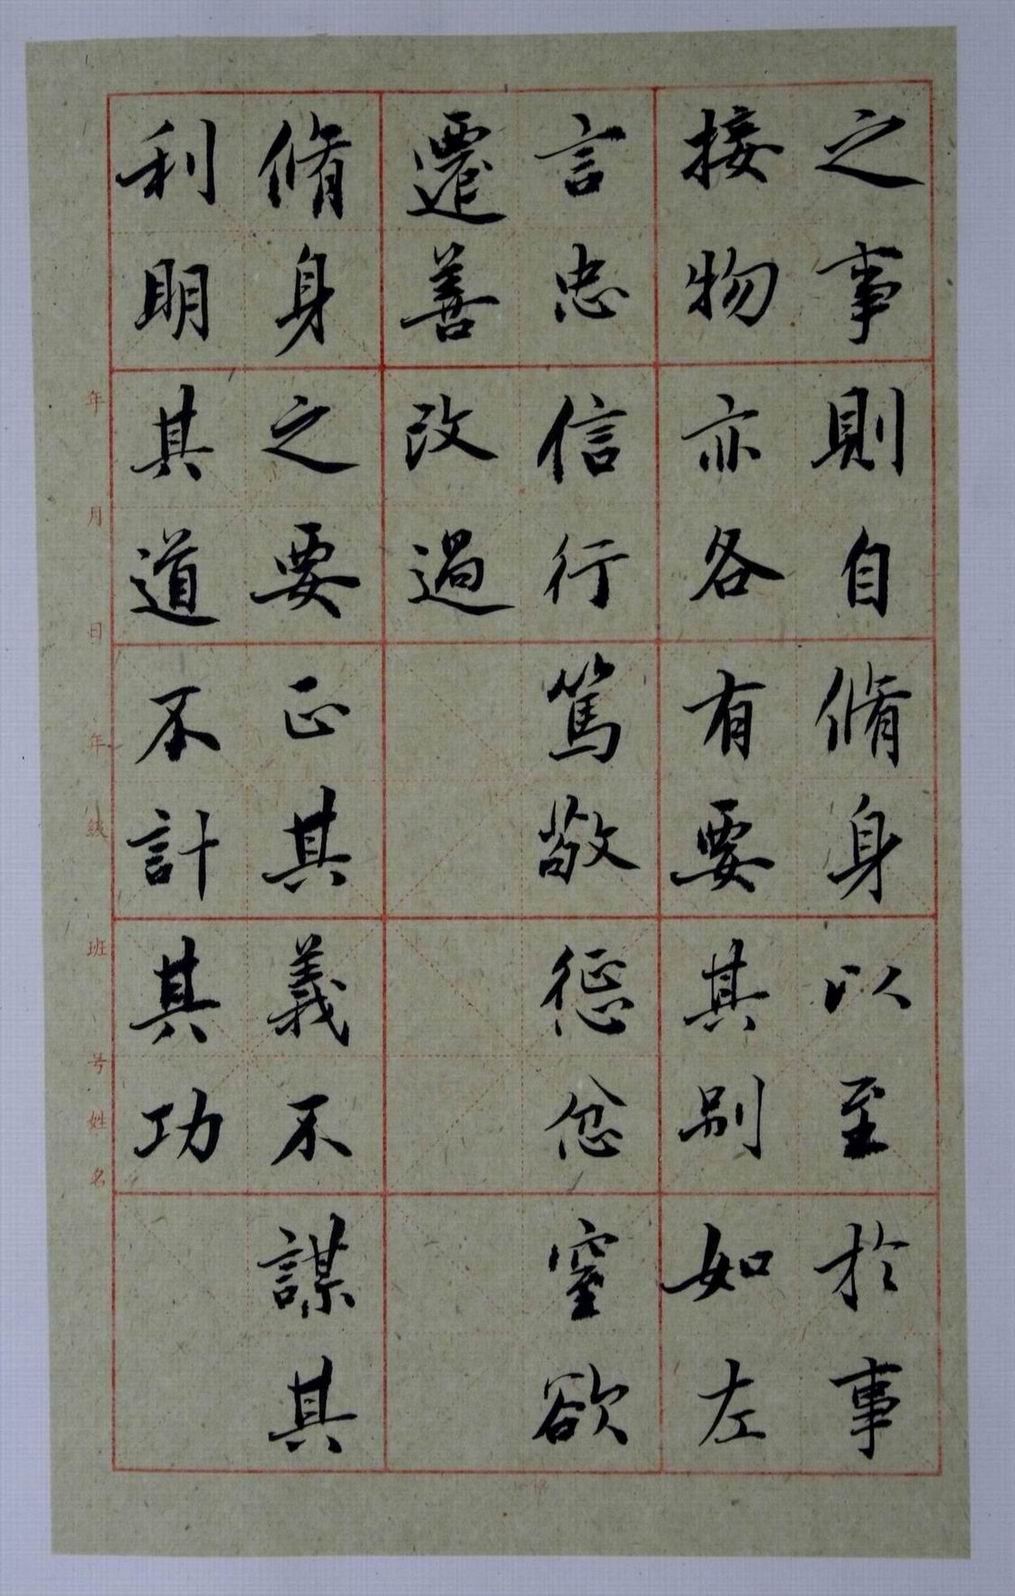 之事則自脩身以至於事
接物亦各有要其别如左
言忠信行篤敬懲忿窒欲
遷善改過
脩身之要正其義不謀其
利明其道不計其功
年 月 日 年 级 班 号 姓名